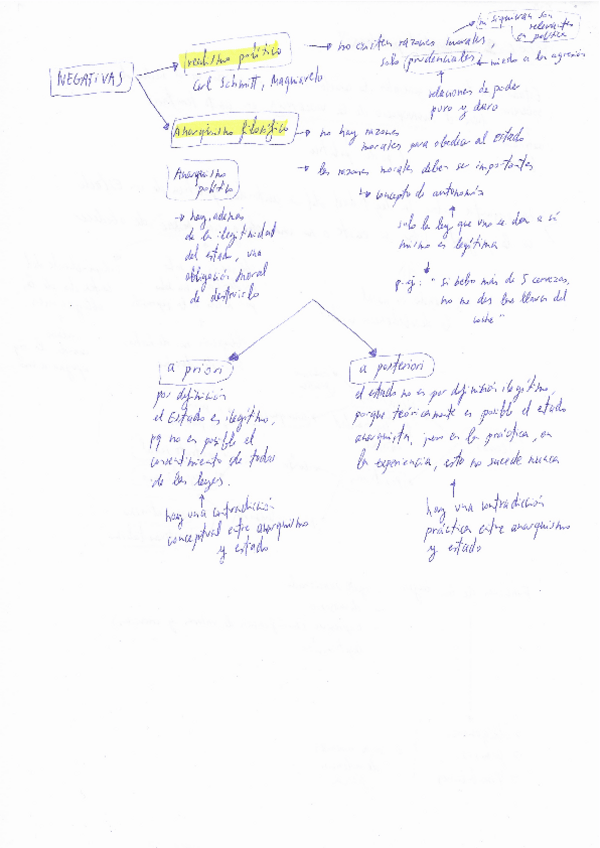 NEGATIVAS
realismo político
Carl Schmitt, Maquiavelo
→ no existen razones morales,
solo prudenciales
ni siquiera son
relevantes
en política
miedo a la agresión
relaciones de poder
puro y duro
Anarquismo filosófico
→ no hay razones
morales para obedecer al estado
→ las razones morales deben ser importantes
concepto de autonomía
solo la ley que uno se da a sí
mismo es legítima
p.ej: "si bebo más de 5 cervezas,
no me des las llaves del
coche"
Anarquismo
político
→ hay, además
de la ilegitimidad
del estado, una
obligación moral
de destruirlo
a priori
por definición
el Estado es ilegítimo,
pq no es posible el
consentimiento de todos
de las leyes.
hay una contradicción
conceptual entre anarquismo
y estado
a posteriori
el estado no es por definición ilegítimo,
porque teóricamente es posible el estado
anarquista, pero en la práctica, en
la experiencia, esto no sucede nunca
hay una contradicción
práctica entre anarquismo
y estado